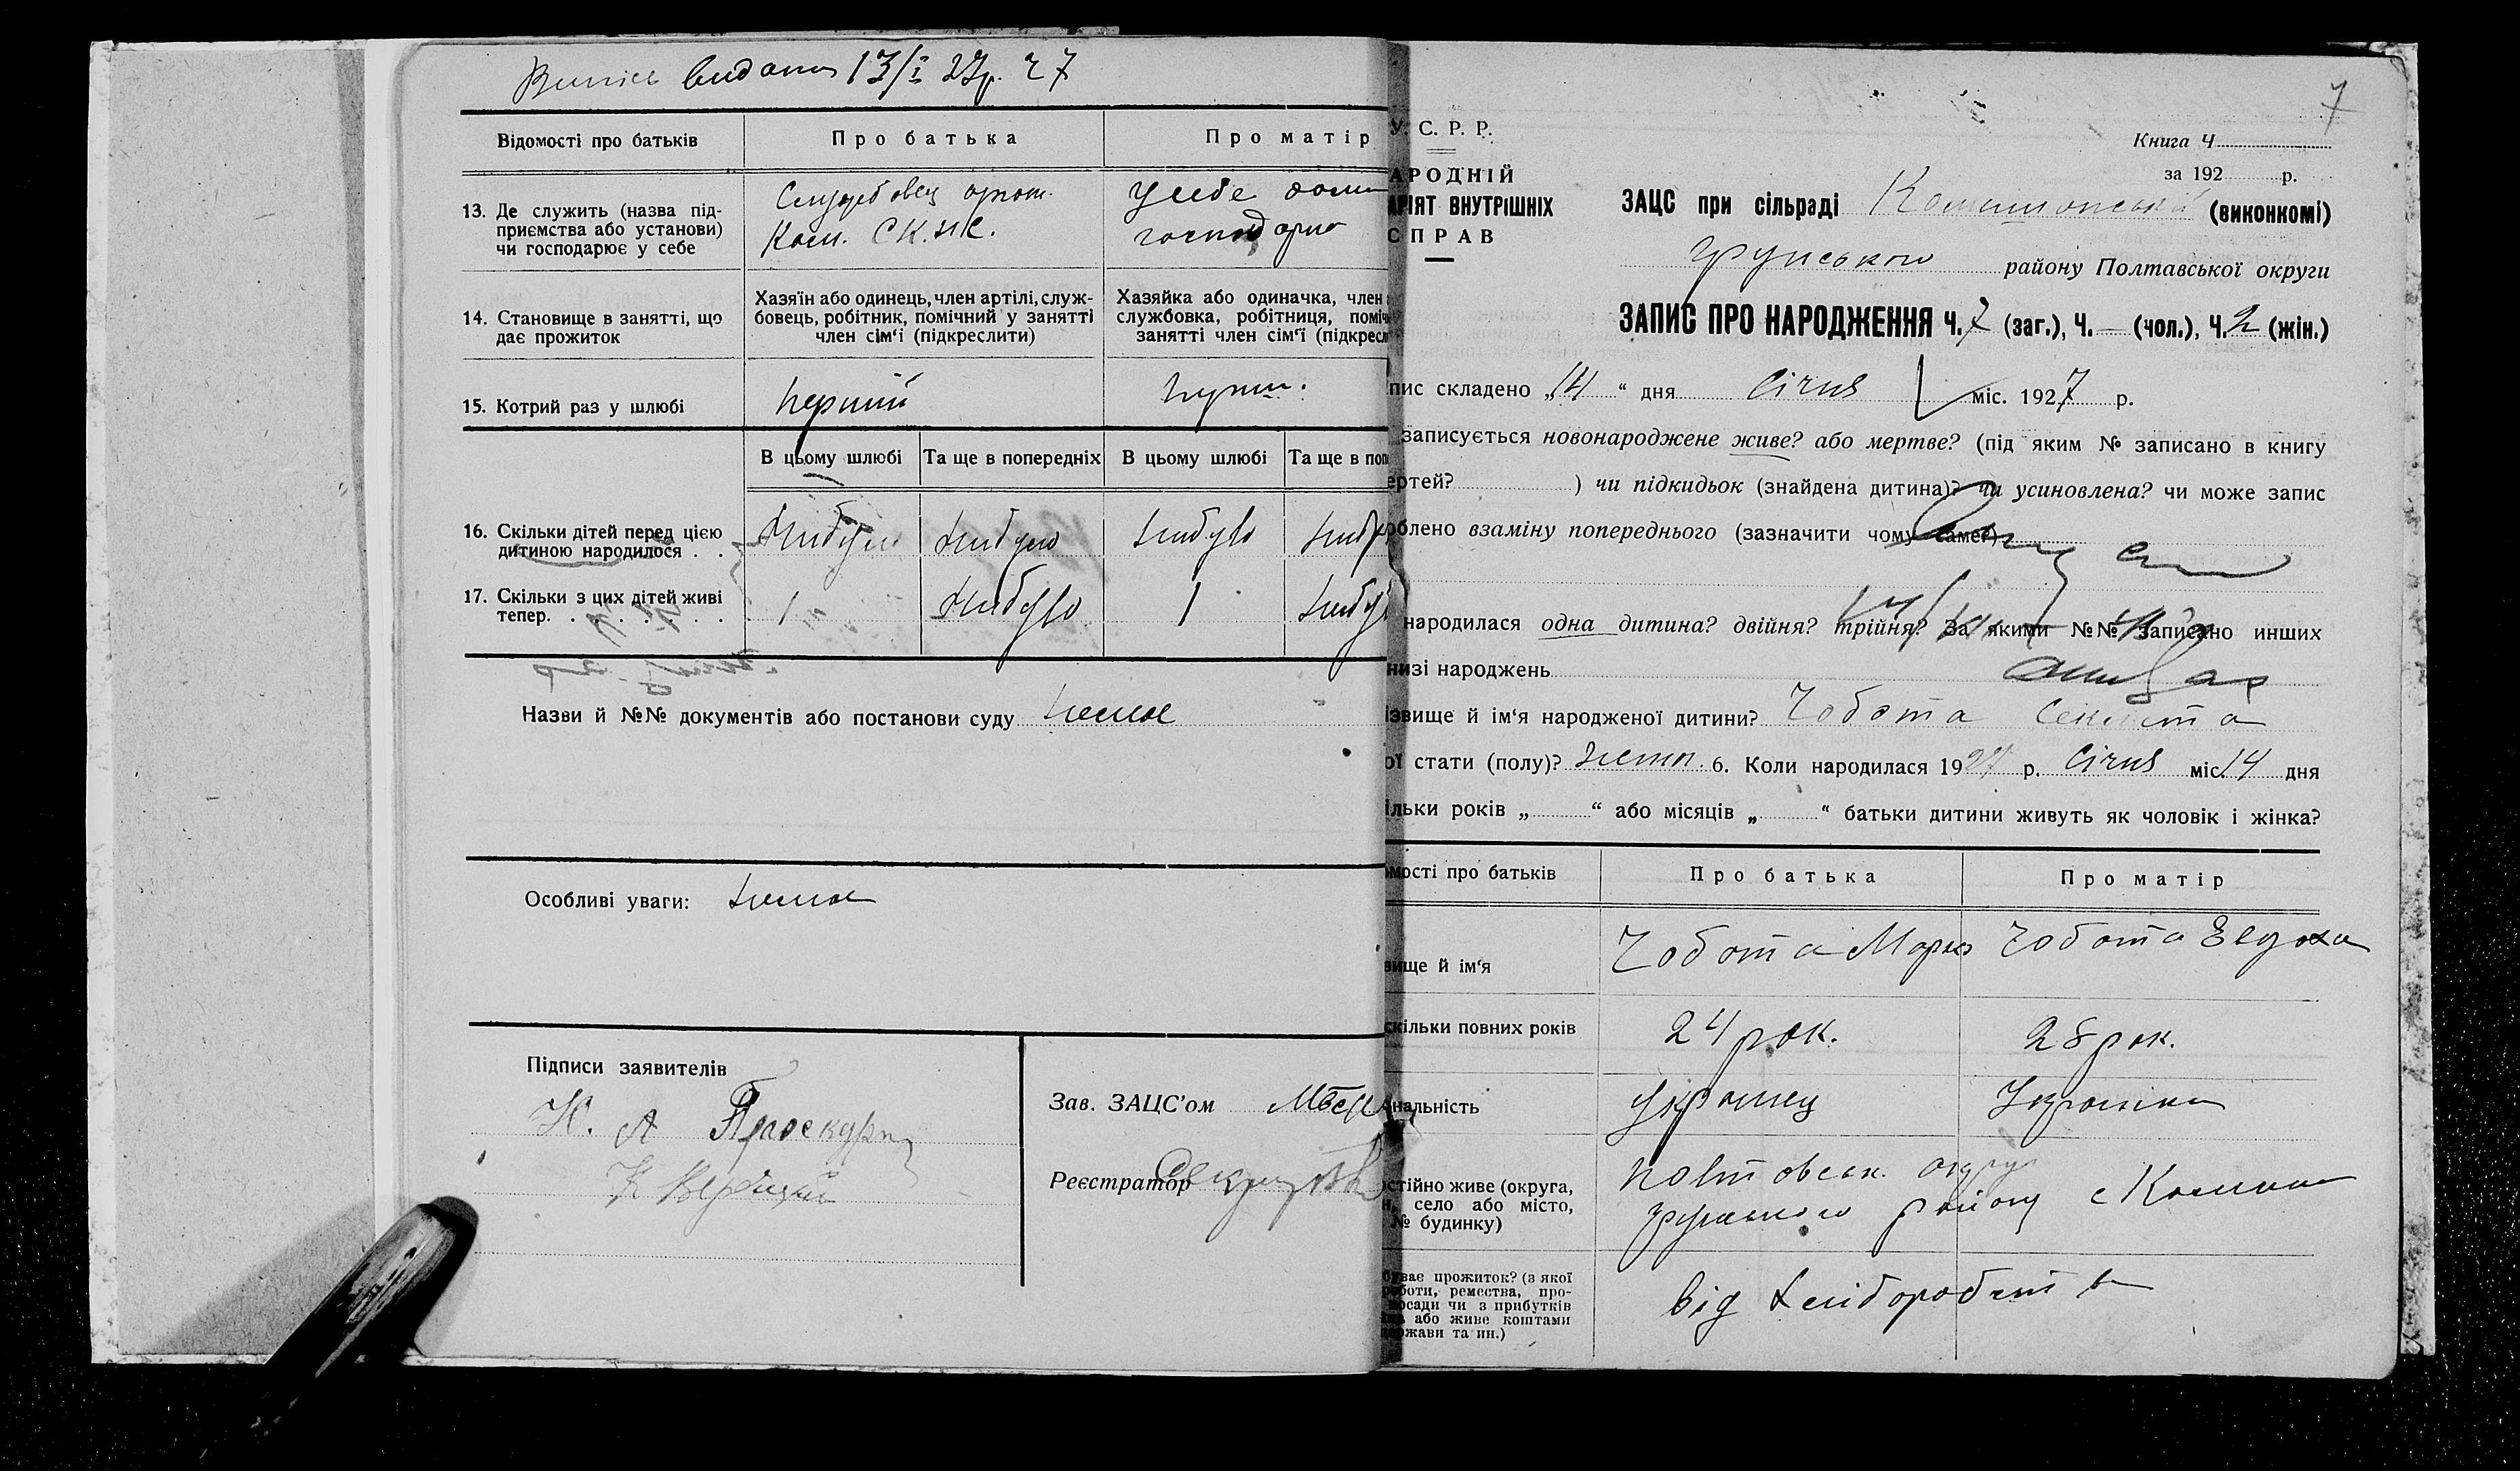 Випись видана 13/I 27р. 27
Відомості про батьків
Про батька
Про матір
13. Де служить (назва під-
приємства або установи)
чи господарює у себе
Службовец
Ком.
у себе
14. Становище в занятті, що
дає прожиток
Хазяїн або одинець, член артілі, служ-
бовець, робітник, помічний у занятті
член сім'ї (підкреслити)
Хазяйка або одиначка, член
службовка, робітниця, поміч
занятті член сім'ї (підкресл
15. Котрий раз у шлюбі
перший
перш.
В цьому шлюбі
Та ще в попередніх
В цьому шлюбі
Та ще в поп
16. Скільки дітей перед цією
дитиною народилося . .
небуло
небуло
небуло
17. Скільки з цих дітей живі
тепер. . . . . . . .
1
небуло
1
Назви й №№ документів або постанови суду немає
Особливі уваги: немає
Підписи заявителів
Зав. ЗАЦС'ом
Реєстратор
7
У. С. Р. Р.
АРОДНІЙ
АРІЯТ ВНУТРІШНІХ
СПРАВ
Книга Ч
за 192 р.
ЗАЦС при сільраді (виконкомі)
Грунського району Полтавської округи
ЗАПИС ПРО НАРОДЖЕННЯ Ч. 7 (заг.), Ч. — (чол.), Ч. 2 (жін.)
пис складено „14“ дня Січня міс. 1927 р.
записується новонароджене живе? або мертве? (під яким № записано в книгу
ертей? ) чи підкидьок (знайдена дитина)? чи усиновлена? чи може запис
облено взаміну попереднього (зазначити чому саме?)
народилася одна дитина? двійня? трійня? За якими №№ записано инших
низі народжень
ізвище й ім'я народженої дитини? Чобота
ої стати (полу)? 6. Коли народилася 1927 р. Січня міс. 14 дня
ільки років „ “ або місяців „ “ батьки дитини живуть як чоловік і жінка?
омості про батьків
Про батька
Про матір
вище й ім'я
Чобота Марко
Чобота Евдоха
скільки повних років
24 рок.
28 рок.
нальність
Українец
Українка
остійно живе (округа,
н, село або місто,
№ будинку)
Полтавськ. округ
Грунського району с
буває прожиток? (з якої
роботи, ремества, про-
посади чи з прибутків
або живе коштами
держави та ин.)
від хліборобства